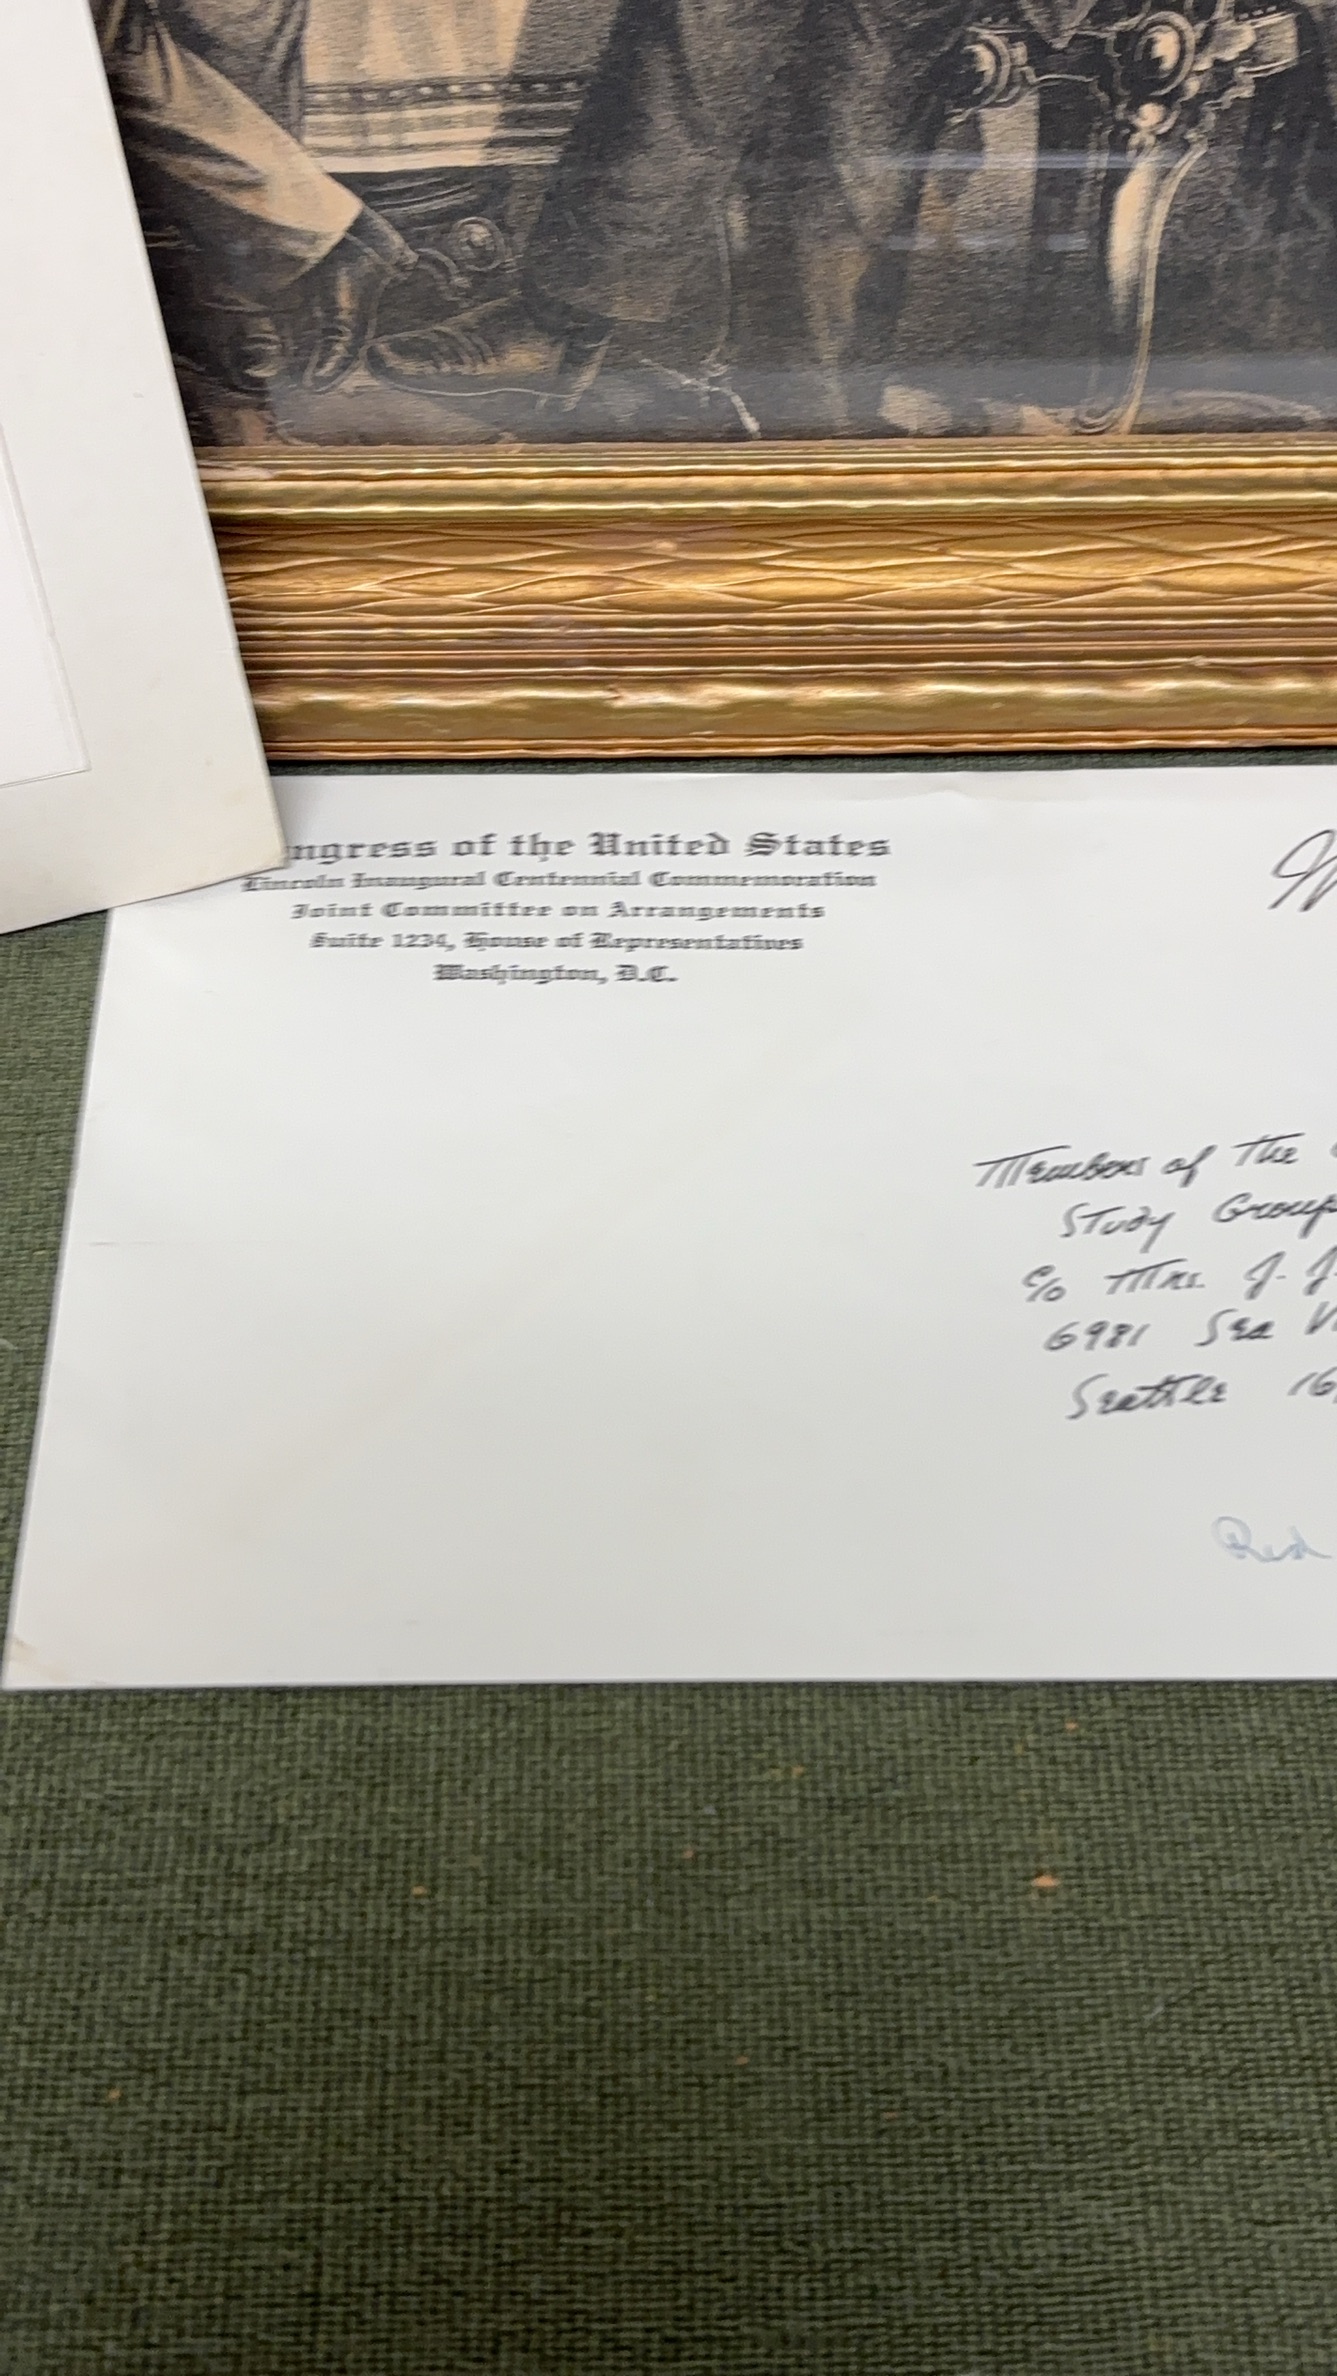 ngress of the United States
Lincoln Inaugural Centennial Commemoration
Joint Committee on Arrangements
Suite 1234, House of Representatives
Washington, D.C.
Members of the
Study Group
c/o Mrs. J. J.
6981 Sea
Seattle 16,
Red